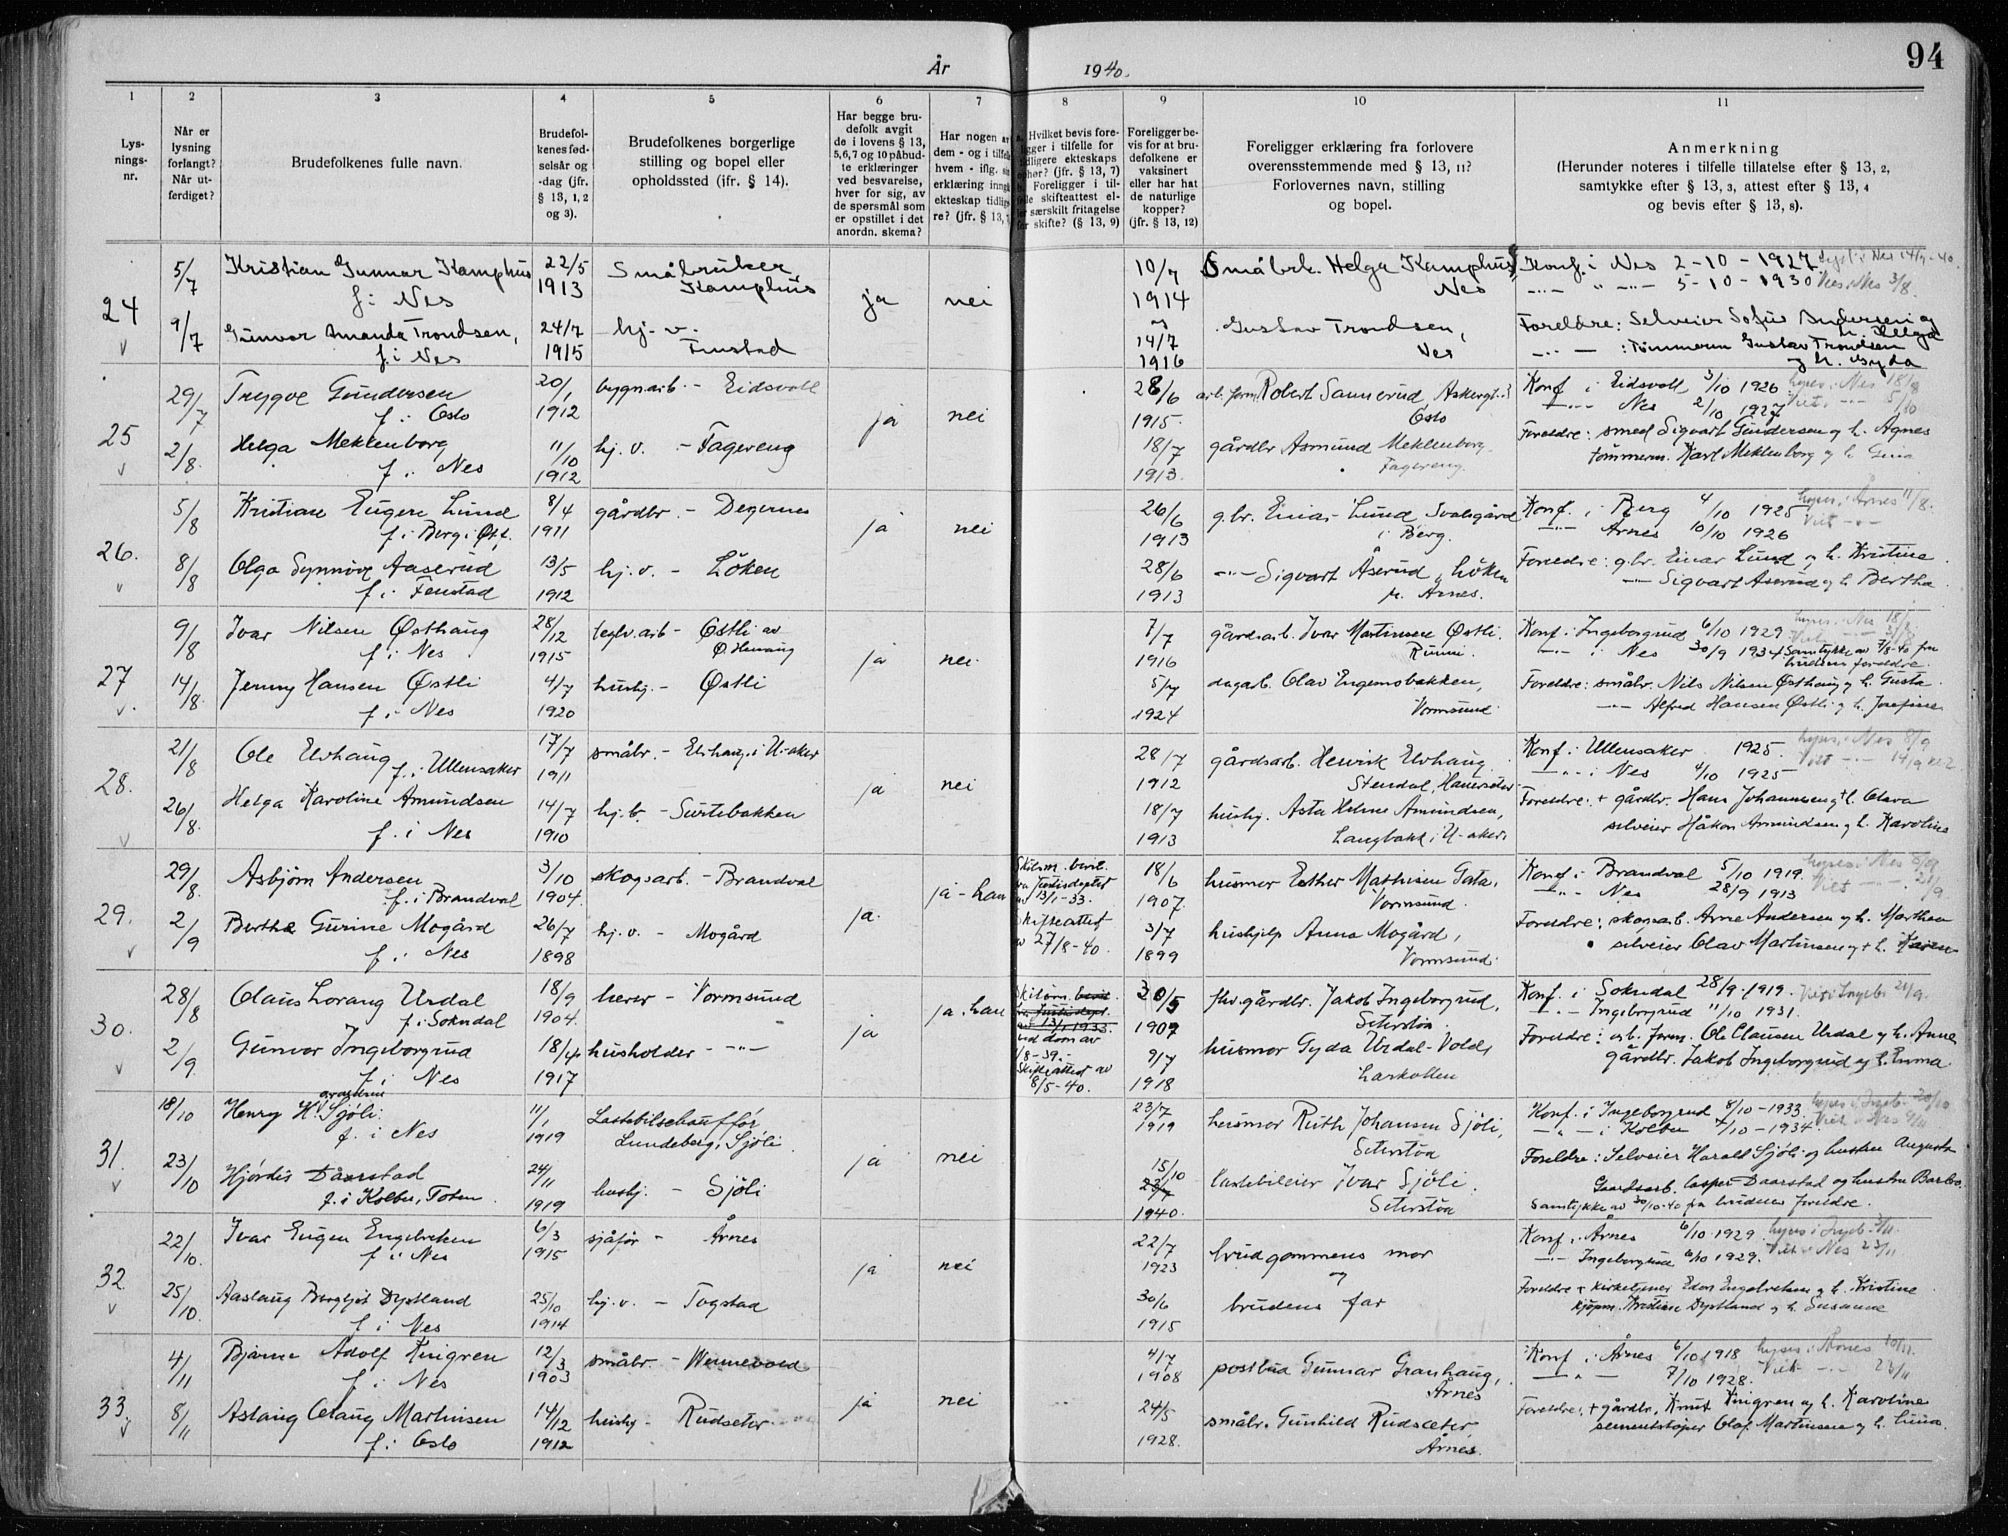 94
År 1940.
1 2 3 4 5 6 7 8 9 10 11
Lys-
nings-
nr.
Når er
lysning
forlangt?
Når ut-
ferdiget?
Brudefolkenes fulle navn.
Brudefol-
kenes fød-
selsår og
-dag (jfr.
§ 13, 1, 2
og 3).
Brudefolkenes borgerlige
stilling og bopel eller
opholdssted (ifr. § 14).
Har begge bru-
defolk avgit
de i lovens § 13,
5,6,7 og 10 påbud-
te erklæringer
ved besvarelse,
hver for sig, av
de spørsmål som
er opstillet i det
anordn. skema?
Har nogen av
dem - og i tilfelle
hvem - iflg.
erklæring inng
ekteskap tidlig
re? (jfr. § 13,
Hvilket bevis fore-
ligger i tilfelle for
tidligere ekteskaps
ophør? (jfr. § 13, 7)
Foreligger i til-
felle skifteattest el-
ler særskilt fritagelse
for skifte? (§ 13, 9)
Foreligger be-
vis for at bru-
defolkene er
vaksinert
eller har hat
de naturlige
kopper?
(jfr. § 13, 12)
Foreligger erklæring fra forlovere
overensstemmende med § 13, 11?
Forlovernes navn, stilling
og bopel.
Anmerkning
(Herunder noteres i tilfelle tillatelse efter § 13, 2,
samtykke efter § 13, 3, attest efter § 13, 4
og bevis efter § 13, 8).
24
5/7 Kristian Gunnar Kamphus 22/5 Småbruker, 10/7 Småbrk. Helga Kamphus, Konf. i Nes 2-10-1927
f. i Nes 1913 Kamphus ja nei 1914 Nes 5-10-1930 Viet i Nes 3/8.
9/7 Gunvor Amanda Trondsen, 24/7 hj. v. 14/7 Gustav Trondsen, Foreldre: Selveier Andersen og h. Helga
f. i Nes 1915 1916 Nes : Tømmerm Gustav Trondsen
og h. Gyda
25
29/7 Trygve Gundersen 20/1 bygn.arb. - Eidsvoll 28/6 Robert Sannerud Konf i Eidsvoll 3/10 1926
f. i Oslo 1912 ja nei 1915. Oslo Nes 2/10 1927
2/8. Helga Meklenborg 11/10 hj. v. - Fagereng 18/7 gårdbr Asmund Meklenborg Foreldre: smed Sigvart Gundersen og h. Agnes
f. i Nes 1912 1913. Fagereng. tømmerm. Karl Meklenborg og h.
26.
5/8 Kristian Eugen Lund 8/4 gårdbr. - Degernes 26/6 g.br. Einar Lund Konf. i Berg 4/10 1925
f. i Berg i Østf. 1911 ja nei 1913 i Berg. Arnes 10/10 1926
8/8 Olga Synnøve Aaserud 13/5 hj. v. - Löken 28/6 Sigvart Åserud, Löken Foreldre: g.br. Einar Lund og h. Kristine
f. i Fenstad 1912 1913 p. Arnes. Sigvart Aserud og h. Bertha
27
9/8 Ivar Nilsen Østhaug 28/12 teglv.arb - Østli av 7/7 gårdsarb. Ivar Martinsen Østli. Konf. i Ingeborgrud 6/10 1929
f. i Nes 1915 ja nei 1916 i Nes 30/9 1934 Samtykke av 7/8-40 fra
brudens foreldre.
14/8. Jenny Hansen Østli 4/7 hushj. - Østli 5/7 dagarb. Olav Engensbakken, Foreldre: småbr. Nils Nilsen Østhaug og h. Gusta
f. i Nes 1920 1924 Vormsund Alfred Hansen Østli og h. Josefine
28.
21/8 Ole Elvhaug 17/7 småbr. - Elvhaug i U-aker 28/7 gårdsarb. Henrik Elvhaug Konf. i Ullensaker 1925.
f. i Ullensaker 1911 ja nei 1912 Stendal, i Nes 4/10 1925
26/8. Helga Karoline Amundsen 14/7 hj. v. - Surtebakken 18/7 hushj. Asta Amundsen, Foreldre: + gårdbr. Hans Johannesen og h. Olava
f. i Nes 1910 1913 Langbakk i U-aker selveier Håkon Amundsen og h. Karoline
29.
29/8. Asbjørn Andersen 3/10 skogsarb. - Brandval Skilsm. bevil. 18/6 husmor Esther Mathisen Konf i Brandval 5/10 1919.
f. i Brandval 1904. ja. ja - han 13/1-33. 1907. Vormsund. Nes 28/9 1913
2/9 Berthe Gurine Mogård 26/7 hj. v. - Mogård Skifteattest 3/7 hushjelp Anna Mogård, Foreldre: skogsarb. Arne Andersen og h. Marthea
f. i Nes 1898 av 27/8-40. 1899 Vormsund. selveier Olav Martinsen og + h. Karen
30.
28/8 Olaus Lorang Urdal 18/9 herer - Vormsund 30/5 fhv. gårdbr. Jakob Ingeborgrud, Konf. i Sokndal 28/9.1919.
f. i Sokndal 1904. ja ja. han 1907 Seterstøa Ingeborgrud 11/10 1931.
2/9. Gunvor Ingeborgrud 18/4 husholder Skifteattest av 9/7 husmor Gyda Urdal-Vold, Foreldre: arb. form. Ole Clausen Urdal og h. Anne
f. i Nes 1917 8/5-40. 1918 Larkollen gårdbr. Jakob Ingeborgrud og h. Emma
31.
18/10 Henry H. Sjöli. 11/1 Lastebilchauffør 23/7 husmor Ruth Johansen Sjöli, Konf. i Ingeborgrud 8/10-1933.
f. i Nes 1919 Lundeberg, Sjöli. ja nei 1919 Seterstøa i Kolbu 7/10-1934.
23/10 Hjördis Daarstad 24/11 hushj. - Sjöli 15/10 lastebileier Ivar Sjöli. Foreldre: Selveier Harald Sjöli og hustru Augusta
f. i Kolbu, Toten. 1919 1940. Seterstøa Gaardsarb. Casper Daarstad og hustru Barbo.
Samtykke av 30/10-40 fra brudens foreldre.
32
22/10. Ivar Eugen Engebretsen 6/3 sjåfør - Årnes 22/7 brudgommens mor Konf. i Årnes 6/10 1929.
f. i Nes 1915 ja nei 1923 og Ingeborgrud 6/10 1929.
25/10. Aaslaug Bergljot Dystland 25/10 hj. v. - Togstad 30/6 brudens far Foreldre + kirketjener Edon Engebretsen og h. Kristine
f. i Nes 1914 1915 kjøpm. Kristian Dystland og h. Susanne
33.
4/11 Bjarne Adolf Knigren 12/3 småbr. - Wennevold 4/7 postbud Gunnar Granhaug, Konf i Årnes 6/10 1918
f. i Nes 1903 ja nei 1908 Årnes 7/10 1928.
8/11 Aslaug Olaug Martinsen 14/12 hushj - Rudseter 24/5 småbr. Gunhild Rudseter, Foreldre: + gårdbr. Knut Knigren og h. Karoline
f. i Oslo 1912 1928. Årnes. sementstøper Olaf Martinsen og h.